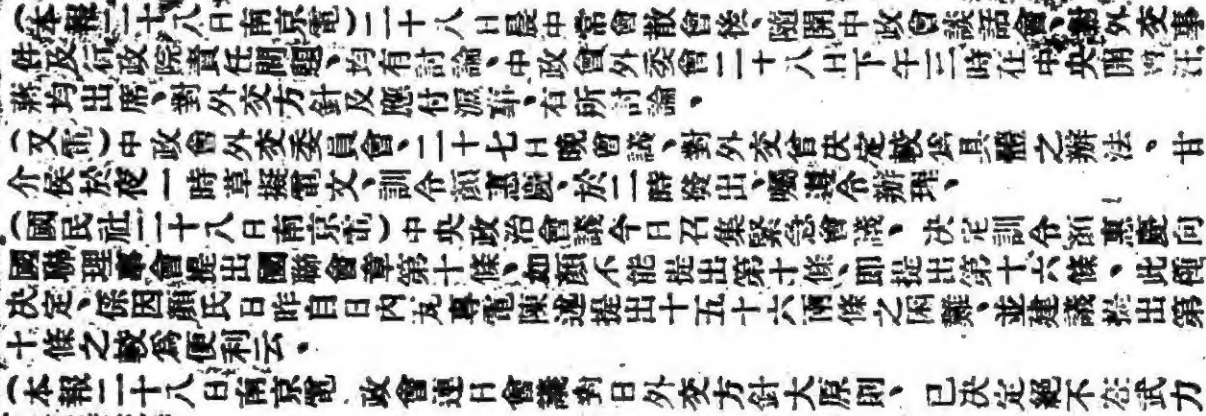 (本報二十八日南京電)二十八日晨中常會散會後、隨開中政會談話會、對外交事
件及行政院責任問題、均有討論、中政會外委會二十八日下午三時在中央開會汪
蔣均出席、對外交方針及應付滬事、有所討論、
(又電)中政會外交委員會、二十七日晚會議、對外交會決定較爲具體之辦法。甘
介侯於夜一時草擬電文、訓令顏惠慶、於二時發出、囑遵令辦理、
(國民社二十八日南京電)中央政治會議今日召集緊急會議、決定訓令顏惠慶向
國聯理事會提出國聯會章第十條、如顏不能提出第十條、即提出第十六條、此種
決定、係因顏氏日昨自日內瓦專電陳述提出十五十六兩條之困難、並建議提出第
十條之較爲便利云。
(本報二十八日南京電 政會連日會議對日外交方針大原則、已決定絕不在武力